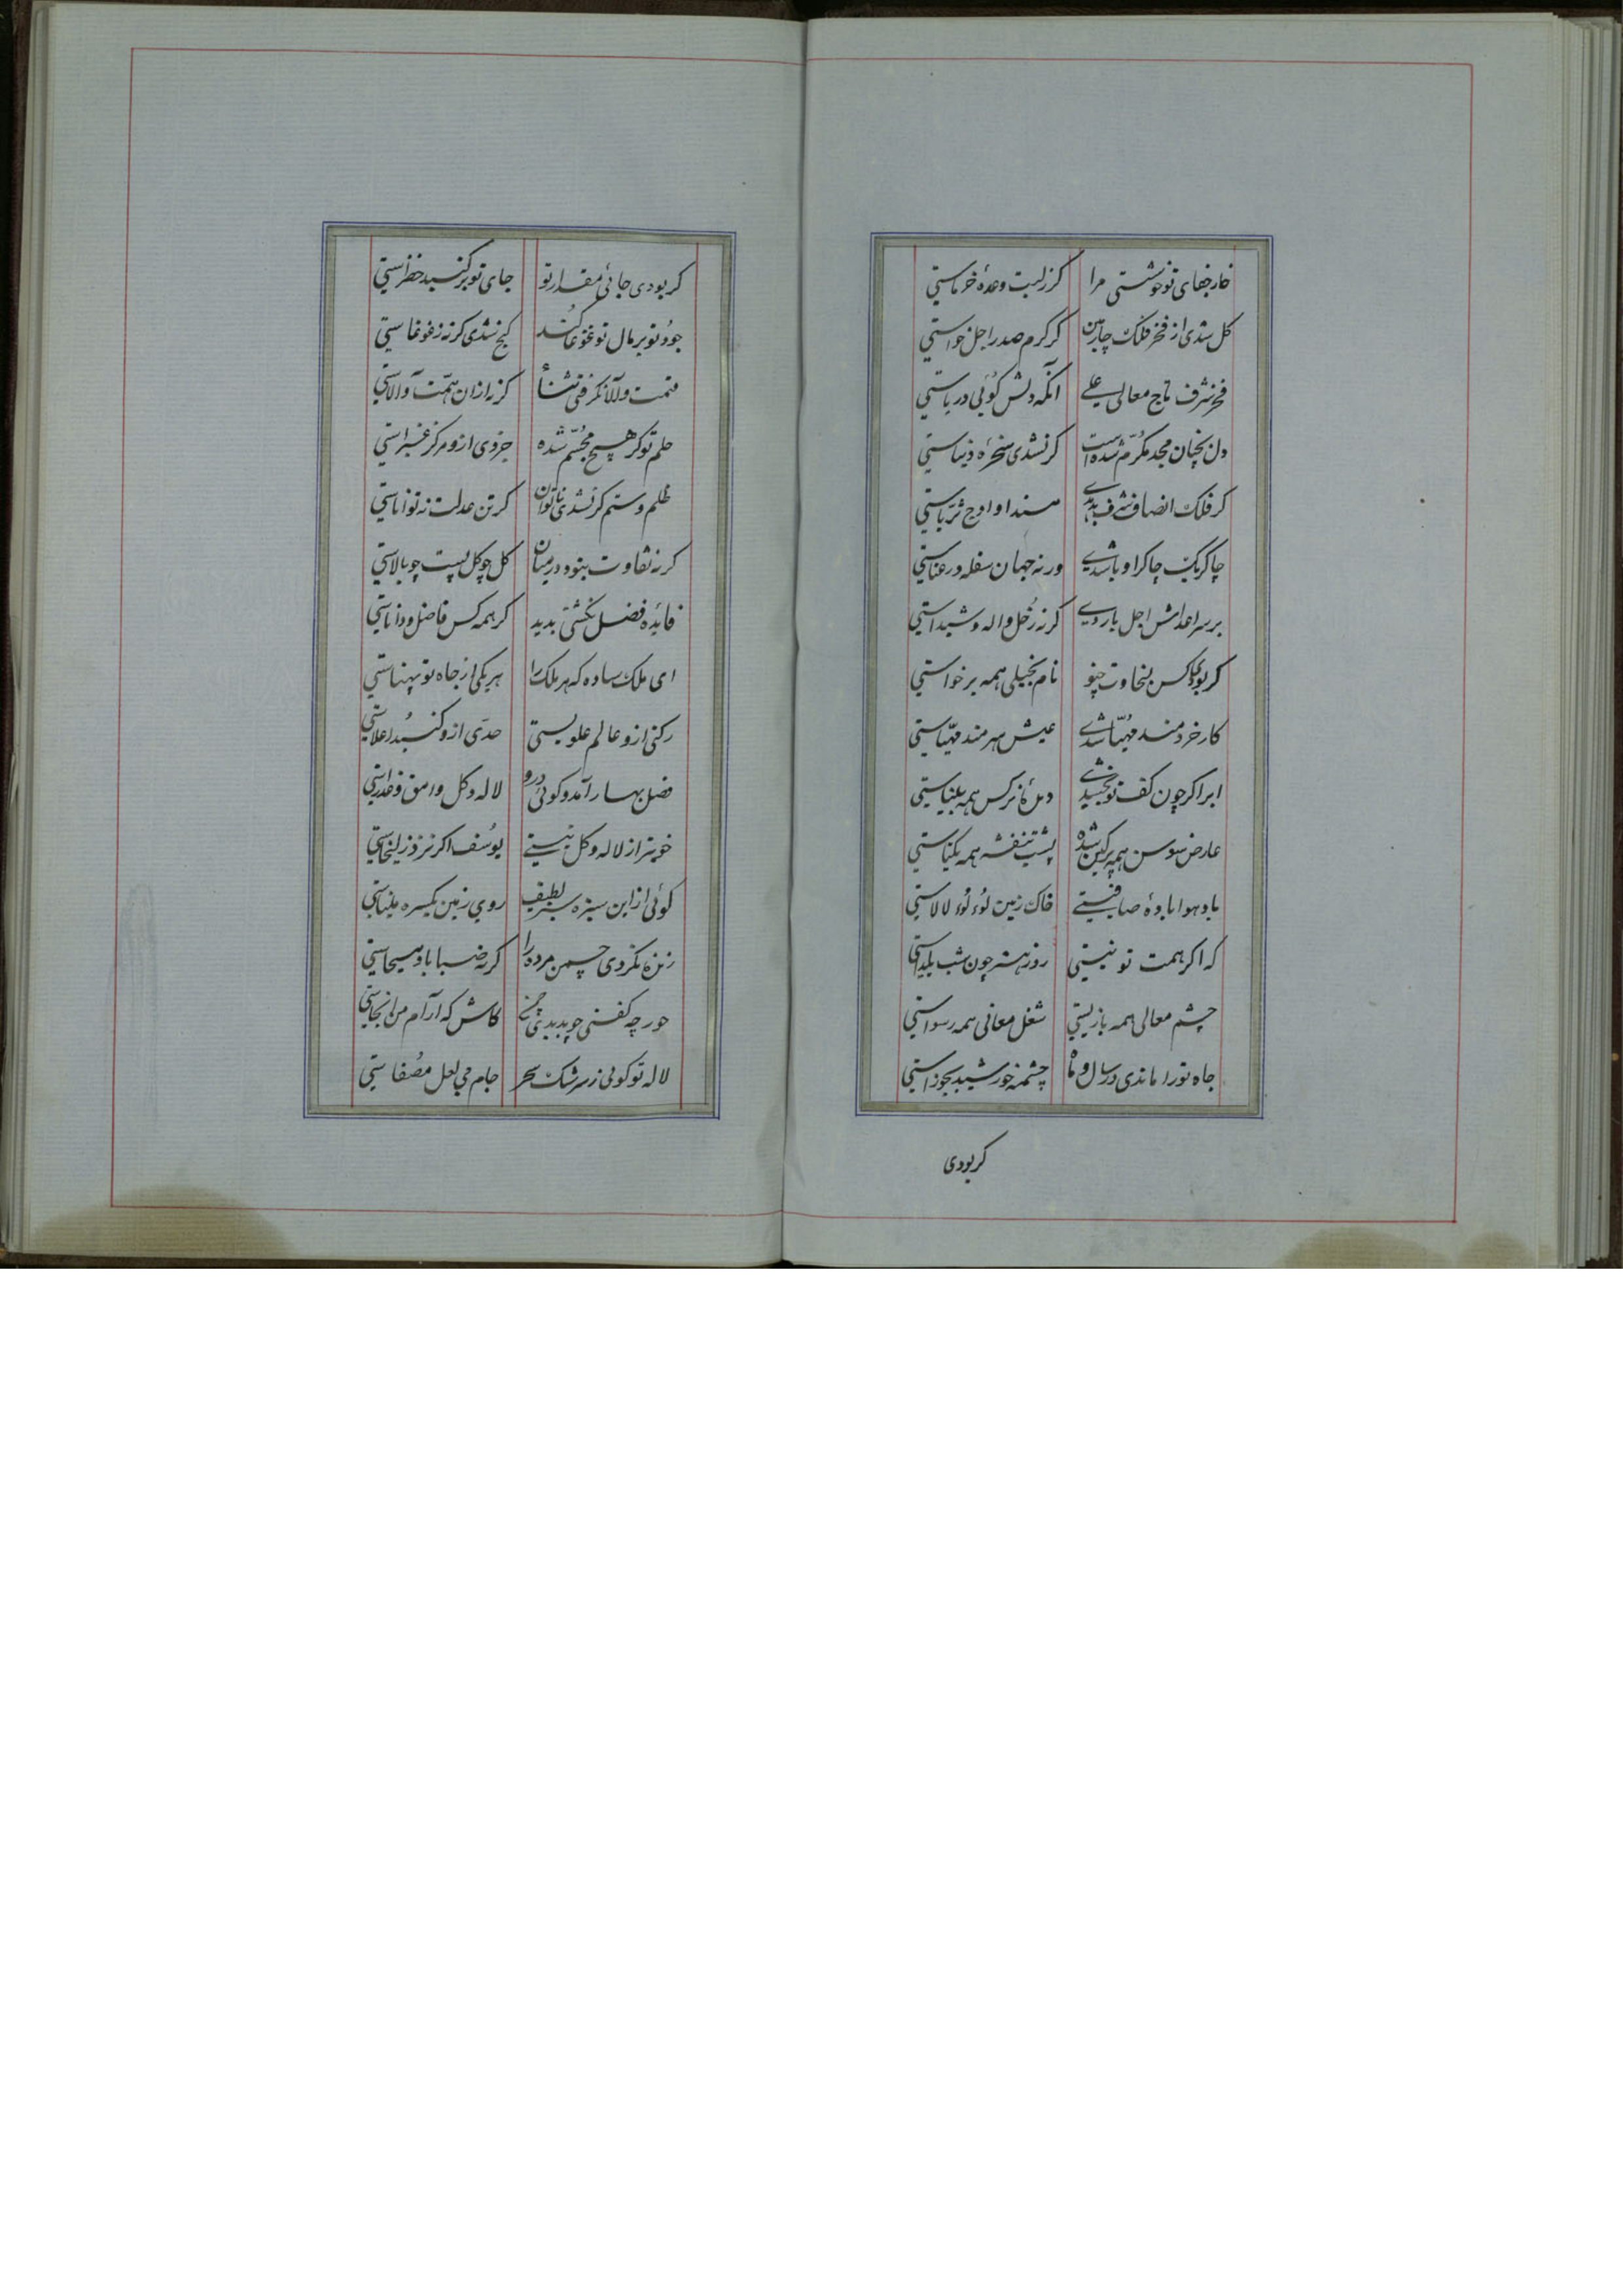 خار جفای تو خوشستی مرا کز لبت وعده خرماستی
کل شدی از فخر فلک چاپن کر کرم صدر اجل خواستی
فخر شرف تاج معالی علی آنکه دلش کوئی دریاستی
دل بچنان مجد مکرم شده است کر نشدی سخره دنیاستی
کر فلک انصاف شرف بدیدی مسند او اوج ثریاستی
چاکر یک چاکر او باشدی ورنه جهان سفله و رعناستی
بر سر اعداش اجل باردی کرنه زحل واله و شیداستی
کر بودی کس بسخاوت چو نام بخیلی همه برخواستی
کار خردمند مهیا شدی عیش هنرمند مهیاستی
ابر اکر چون کف تو بخشدی دیده نرکس همه بیناستی
عارض سوسن همه پرکین شده پشت بنفشه همه یکتاستی
باد هوا باده صافیستی خاک زمین لؤلؤ لالاستی
که اکر همت تو نیستی روز هنر چون شب یلداستی
چشم معالی همه بازیستی شغل معانی همه رسواستی
جاه تو را ماندی در سال و ماه چشمه خورشید بجوزاستی
کر بودی
کر بودی جائی مقدار تو جای تو بر کنبد خضراستی
جود تو بر مال تو غوغا کند کنج نشدی کر نه ز غوغاستی
قیمت والا نکرفتی شنا کر نه از ان همت والاستی
حلم تو کر هیچ مجسم شده جزوی ازو مرکز غبراستی
ظلم و ستم کر نشدی ناتوان کر تن عدلت نه تواناستی
کر نه تفاوت بنود در میان کل چو کل پست چو بالاستی
فایده فضل نکشتی بدید کر همه کس فاضل و داناستی
ای ملک ساده که هر ملک را هر یکی از جاه تو پهناستی
رکنی ازو عالم علویستی حدی ازو کنبد اعلاستی
فصل بهار آمد و کوئی درو لاله و کل وامق و عذراستی
خوبتر از لاله و کل نیستی یوسف اکر نزد زلیخاستی
کوئی از این سبزه سبز لطیف روی زمین یکسره میناستی
زنده نکردی چمن مرده را کر نه صبا باد مسیحاستی
حور چه کفتی چو بدیدی چمن کاش که آرام من انجاستی
لاله تو کوئی ز سرشک سحر جام می لعل مصفاستی